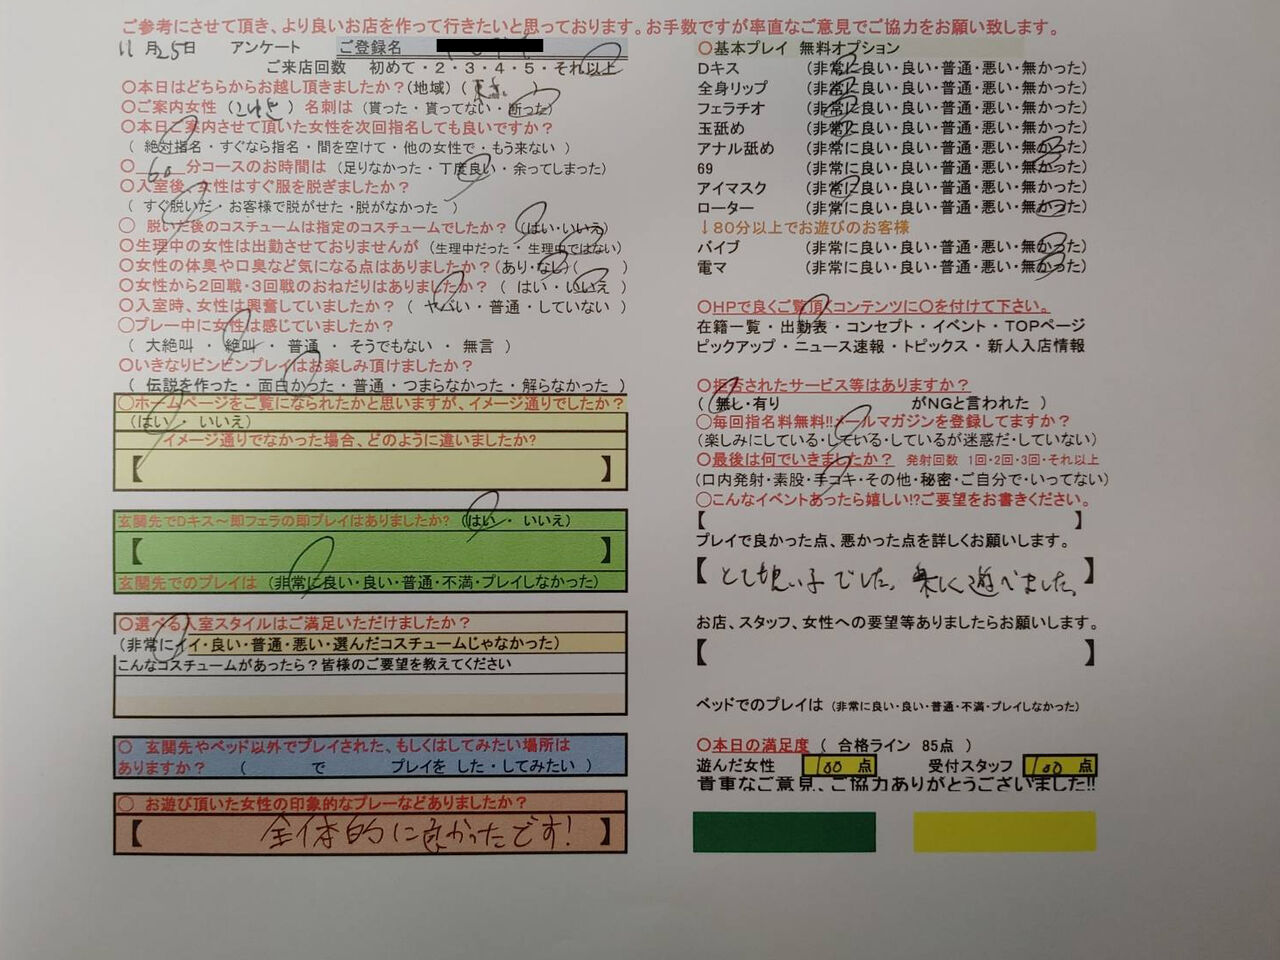 ご参考にさせて頂き、より良いお店を作って行きたいと思っております。お手数ですが率直なご意見でご協力をお願い致します。
11月25日 アンケート ご登録名
ご来店回数 初めて・2・3・4・5・それ以上
〇本日はどちらからお越し頂きましたか?(地域)( )
〇ご案内女性( )名刺は(貰った・貰ってない・断った)
〇本日ご案内させて頂いた女性を次回指名しても良いですか?
( 絶対指名・すぐなら指名・間を空けて・他の女性で・もう来ない )
〇 60 分コースのお時間は(足りなかった・丁度良い・余ってしまった)
〇入室後、女性はすぐ服を脱ぎましたか?
( すぐ脱いだ・お客様で脱がせた・脱がなかった )
〇 脱いだ後のコスチュームは指定のコスチュームでしたか?(はい・いいえ)
〇生理中の女性は出勤させておりませんが(生理中だった・生理中ではない)
〇女性の体臭や口臭など気になる点はありましたか?(あり・なし)( )
〇女性から2回戦・3回戦のおねだりはありましたか?( はい・いいえ )
〇入室時、女性は興奮していましたか?( ヤバい・普通・していない )
〇プレー中に女性は感じていましたか?
( 大絶叫・絶叫・普通・そうでもない・無言 )
〇いきなりビンビンプレイはお楽しみ頂けましたか?
( 伝説を作った・面白かった・普通・つまらなかった・解らなかった )
〇ホームページをご覧になられたかと思いますが、イメージ通りでしたか?
(はい・ いいえ)
イメージ通りでなかった場合、どのように違いましたか?
【 】
玄関先でDキス~即フェラの即プレイはありましたか?(はい・ いいえ)
【 】
玄関先でのプレイは(非常に良い・良い・普通・不満・プレイしなかった)
〇選べる入室スタイルはご満足いただけましたか?
(非常にイイ・良い・普通・悪い・選んだコスチュームじゃなかった)
こんなコスチュームがあったら?皆様のご要望を教えてください
〇 玄関先やベッド以外でプレイされた、もしくはしてみたい場所は
ありますか? ( で プレイを した・してみたい )
〇 お遊び頂いた女性の印象的なプレーなどありましたか?
【 全体的に良かったです! 】
〇基本プレイ 無料オプション
Dキス (非常に良い・良い・普通・悪い・無かった)
全身リップ (非常に良い・良い・普通・悪い・無かった)
フェラチオ (非常に良い・良い・普通・悪い・無かった)
玉舐め (非常に良い・良い・普通・悪い・無かった)
アナル舐め (非常に良い・良い・普通・悪い・無かった)
69 (非常に良い・良い・普通・悪い・無かった)
アイマスク (非常に良い・良い・普通・悪い・無かった)
ローター (非常に良い・良い・普通・悪い・無かった)
↓80分以上でお遊びのお客様
バイブ (非常に良い・良い・普通・悪い・無かった)
電マ (非常に良い・良い・普通・悪い・無かった)
〇HPで良くご覧頂くコンテンツに〇を付けて下さい。
在籍一覧・出勤表・コンセプト・イベント・TOPページ
ピックアップ・ニュース速報・トピックス・新人入店情報
〇拒否されたサービス等はありますか?
( 無し・有り がNGと言われた )
〇毎回指名料無料!!メールマガジンを登録してますか?
(楽しみにしている・している・しているが迷惑だ・していない)
〇最後は何でいきましたか? 発射回数 1回・2回・3回・それ以上
(口内発射・素股・手コキ・その他・秘密・ご自分で・いってない)
〇こんなイベントあったら嬉しい!?ご要望をお書きください。
【 】
プレイで良かった点、悪かった点を詳しくお願いします。
【 とても良い子でした。楽しく遊べました。 】
お店、スタッフ、女性への要望等ありましたらお願いします。
【 】
ベッドでのプレイは(非常に良い・良い・普通・不満・プレイしなかった)
〇本日の満足度( 合格ライン 85点 )
遊んだ女性 100 点 受付スタッフ 100 点
貴重なご意見、ご協力ありがとうございました!!